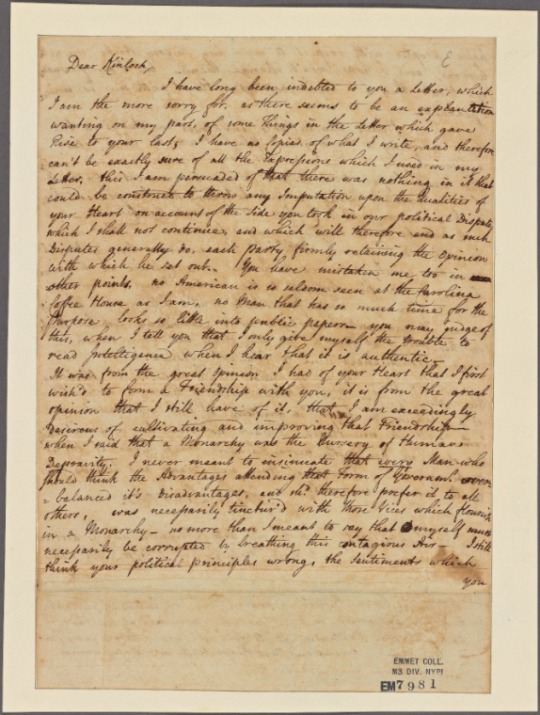 Dear Kinloch,
I have long been indebted to you a Letter, which
I am the more sorry for, as there seems to be an explanation
wanting on my part, of some Things in the Letter which gave
Rise to your last; I have no Copies of what I write, and therefore
can't be exactly sure of all the Expressions which I used in my
Letter, this I am persuaded of that there was nothing in it that
could be construed to throw any Imputation upon the Qualities of
your Heart on account of the Side you took in our political Dispute
which I shall not continue, and which will therefore end as such
Disputes generally do, each Party firmly retaining the Opinion
with which he set out. You have mistaken me too in
other points. no American is so seldom seen at the Carolina
Coffee House as I am, no Man that has so much time for the
Purpose, looks so little into public papers you may judge of
this, when I tell you that I only give myself the trouble to
read Intelligence when I hear that it is authentic
It was from the great Opinion I had of your Heart that I first
wish'd to form a Friendship with you, it is from the great
opinion that I still have of it, that I am exceedingly
Desirous of cultivating and improving that Friendship
when I said that a Monarchy was the Nursery of Human
Depravity; I never meant to insinuate that every Man who
should think the Advantages attending that Form of Governmt. over
-balanced it's disadvantages, and therefore prefer it to all
others, was necessarily tinctur'd with those Vices which flourish
in a Monarchy no more than I meant to say that myself must
necessarily be corrupted by breathing this contagious Air I still
think your political principles wrong, the Sentiments which
you
EMMET COLL.
MS DIV. NYPL
EM7981